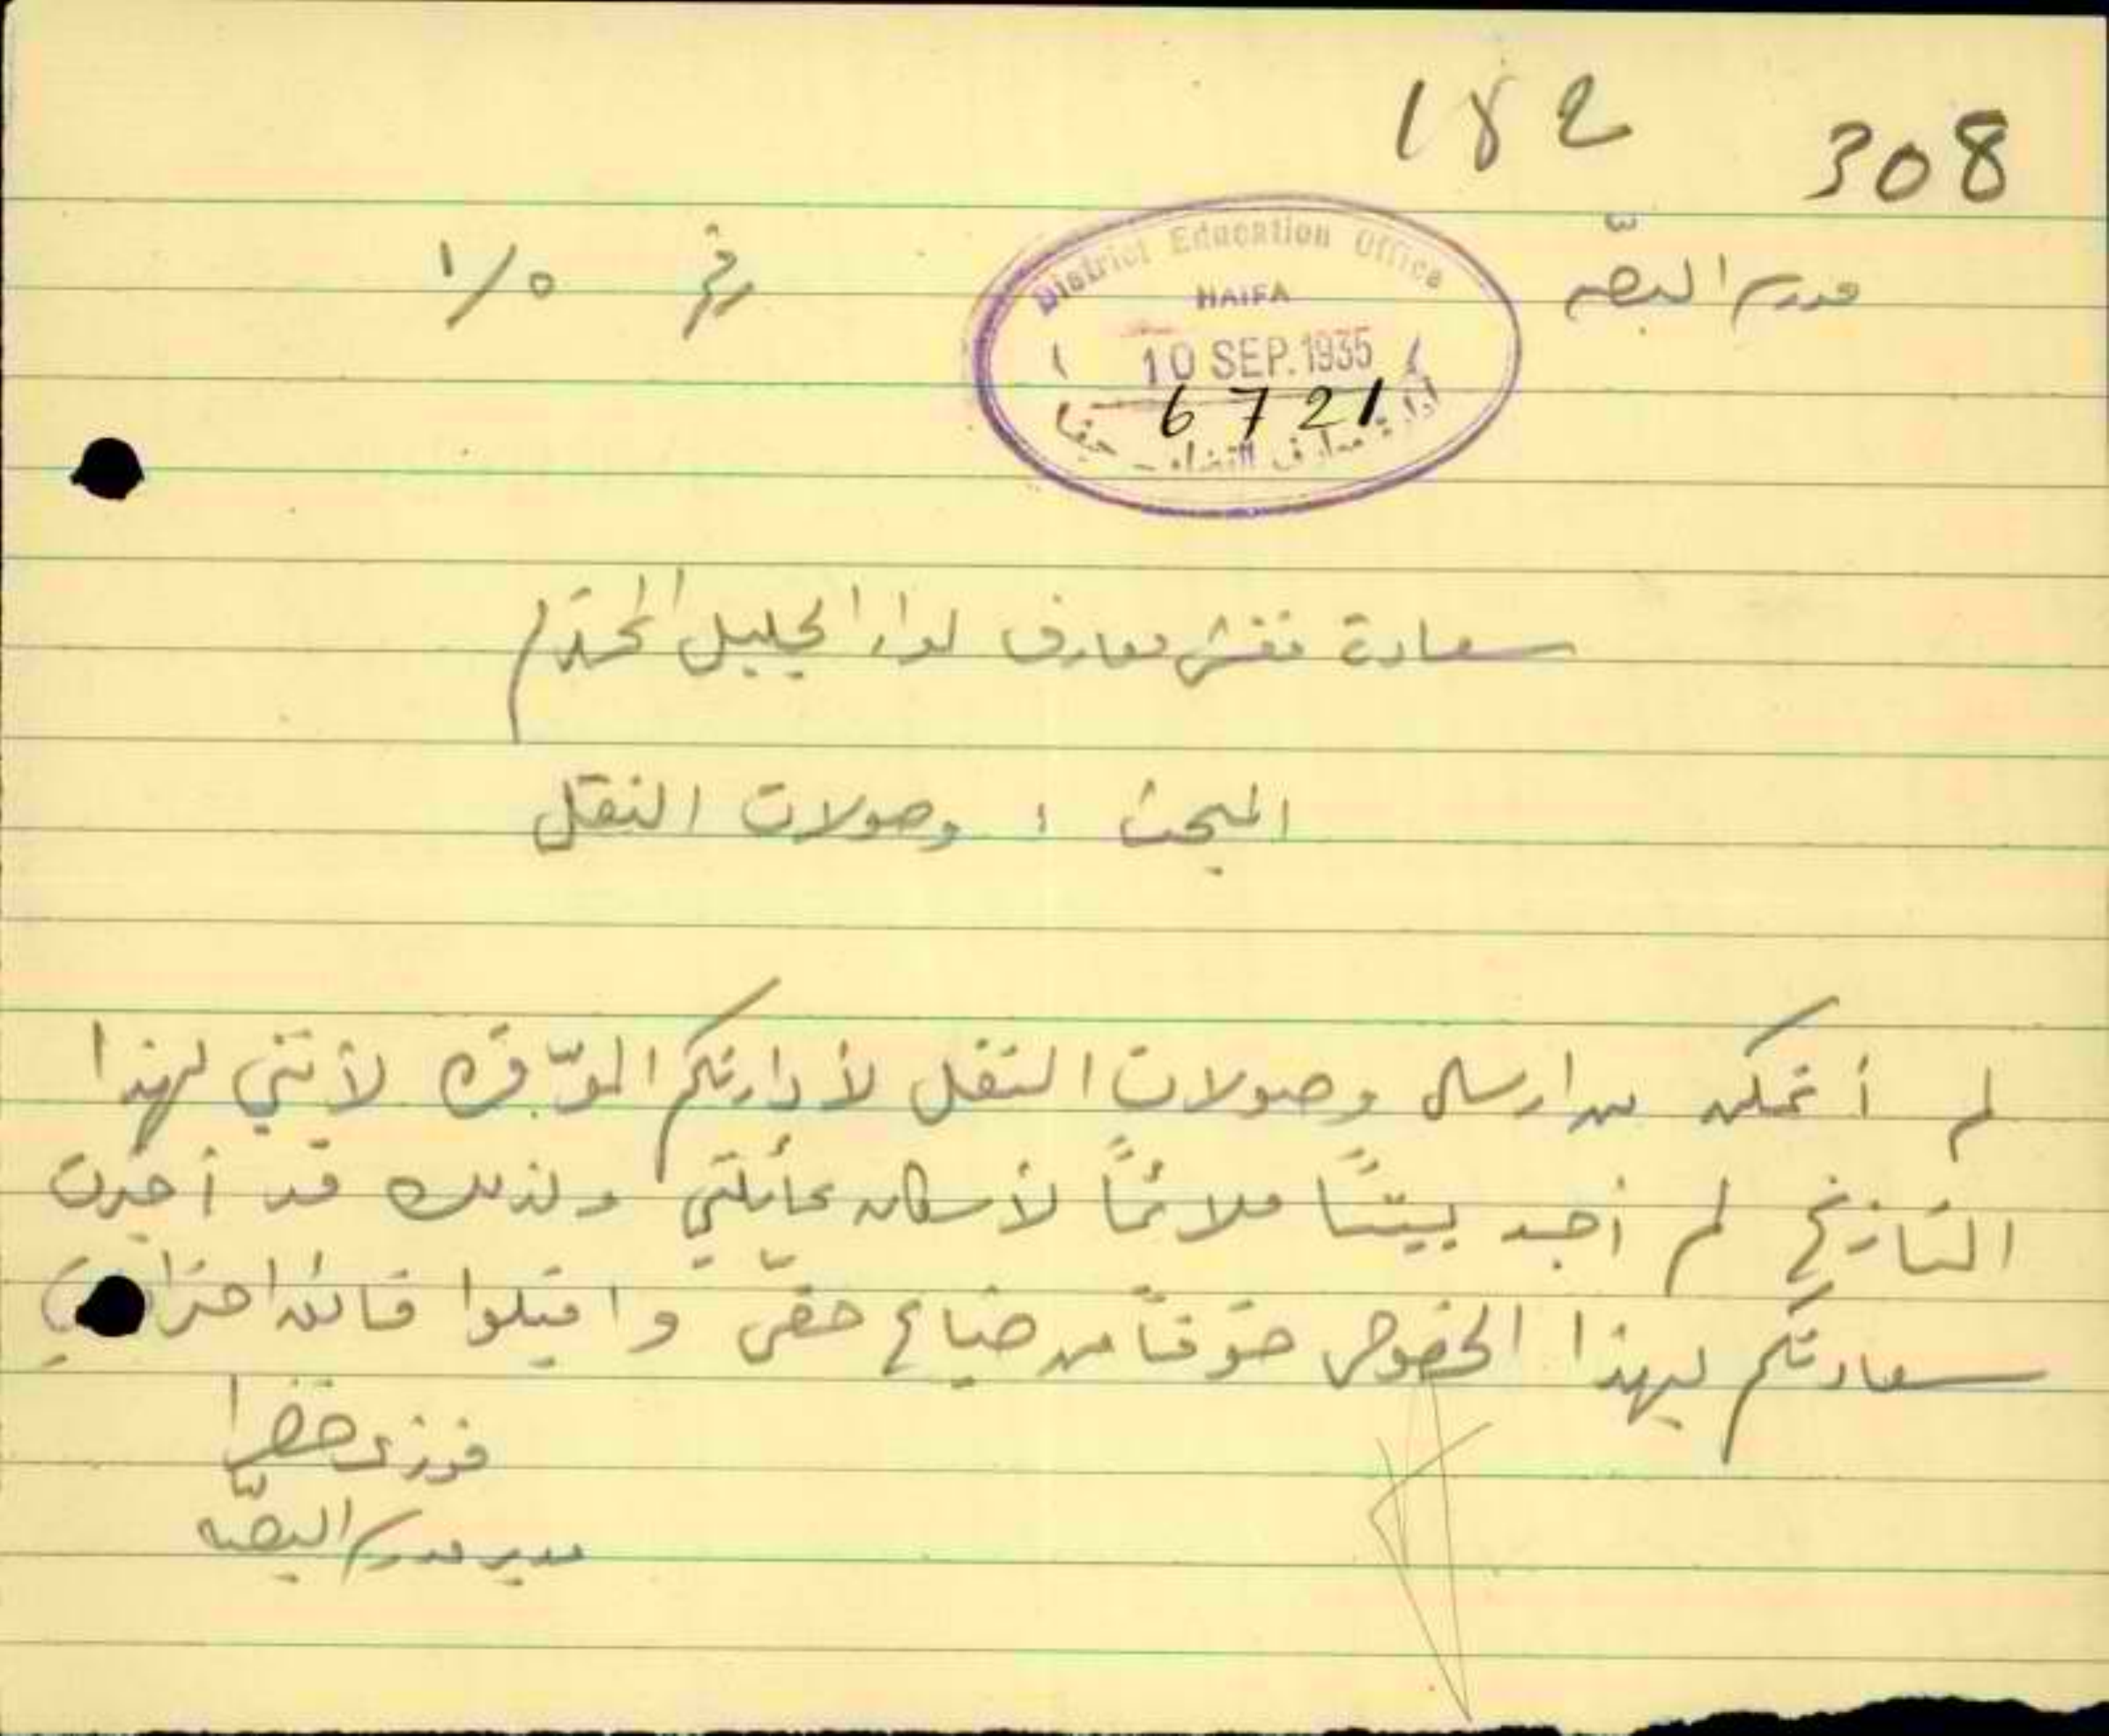 182 308
مدرسة البصّه
رقم ١/٥
District Education Office
HAIFA
10 SEP. 1935
6721
ادارة معارف القضاء - حيفا
سعادة مفتش معارف لواء الجليل المحترم
المبحث : وصولات النقل
لم أتمكن من ارسال وصولات النقل لأدارتكم الموّقره لأنني لهذا
التاريخ لم أجد بيتاً ملائماً لأسكان عائلتي ولذلك قد أخبرت
سعادتكم بهذا الخصوص خوفاً من ضياع حقي واقبلوا فائق احترامي
فوزي خضرا
مدير مدرسة البصّه